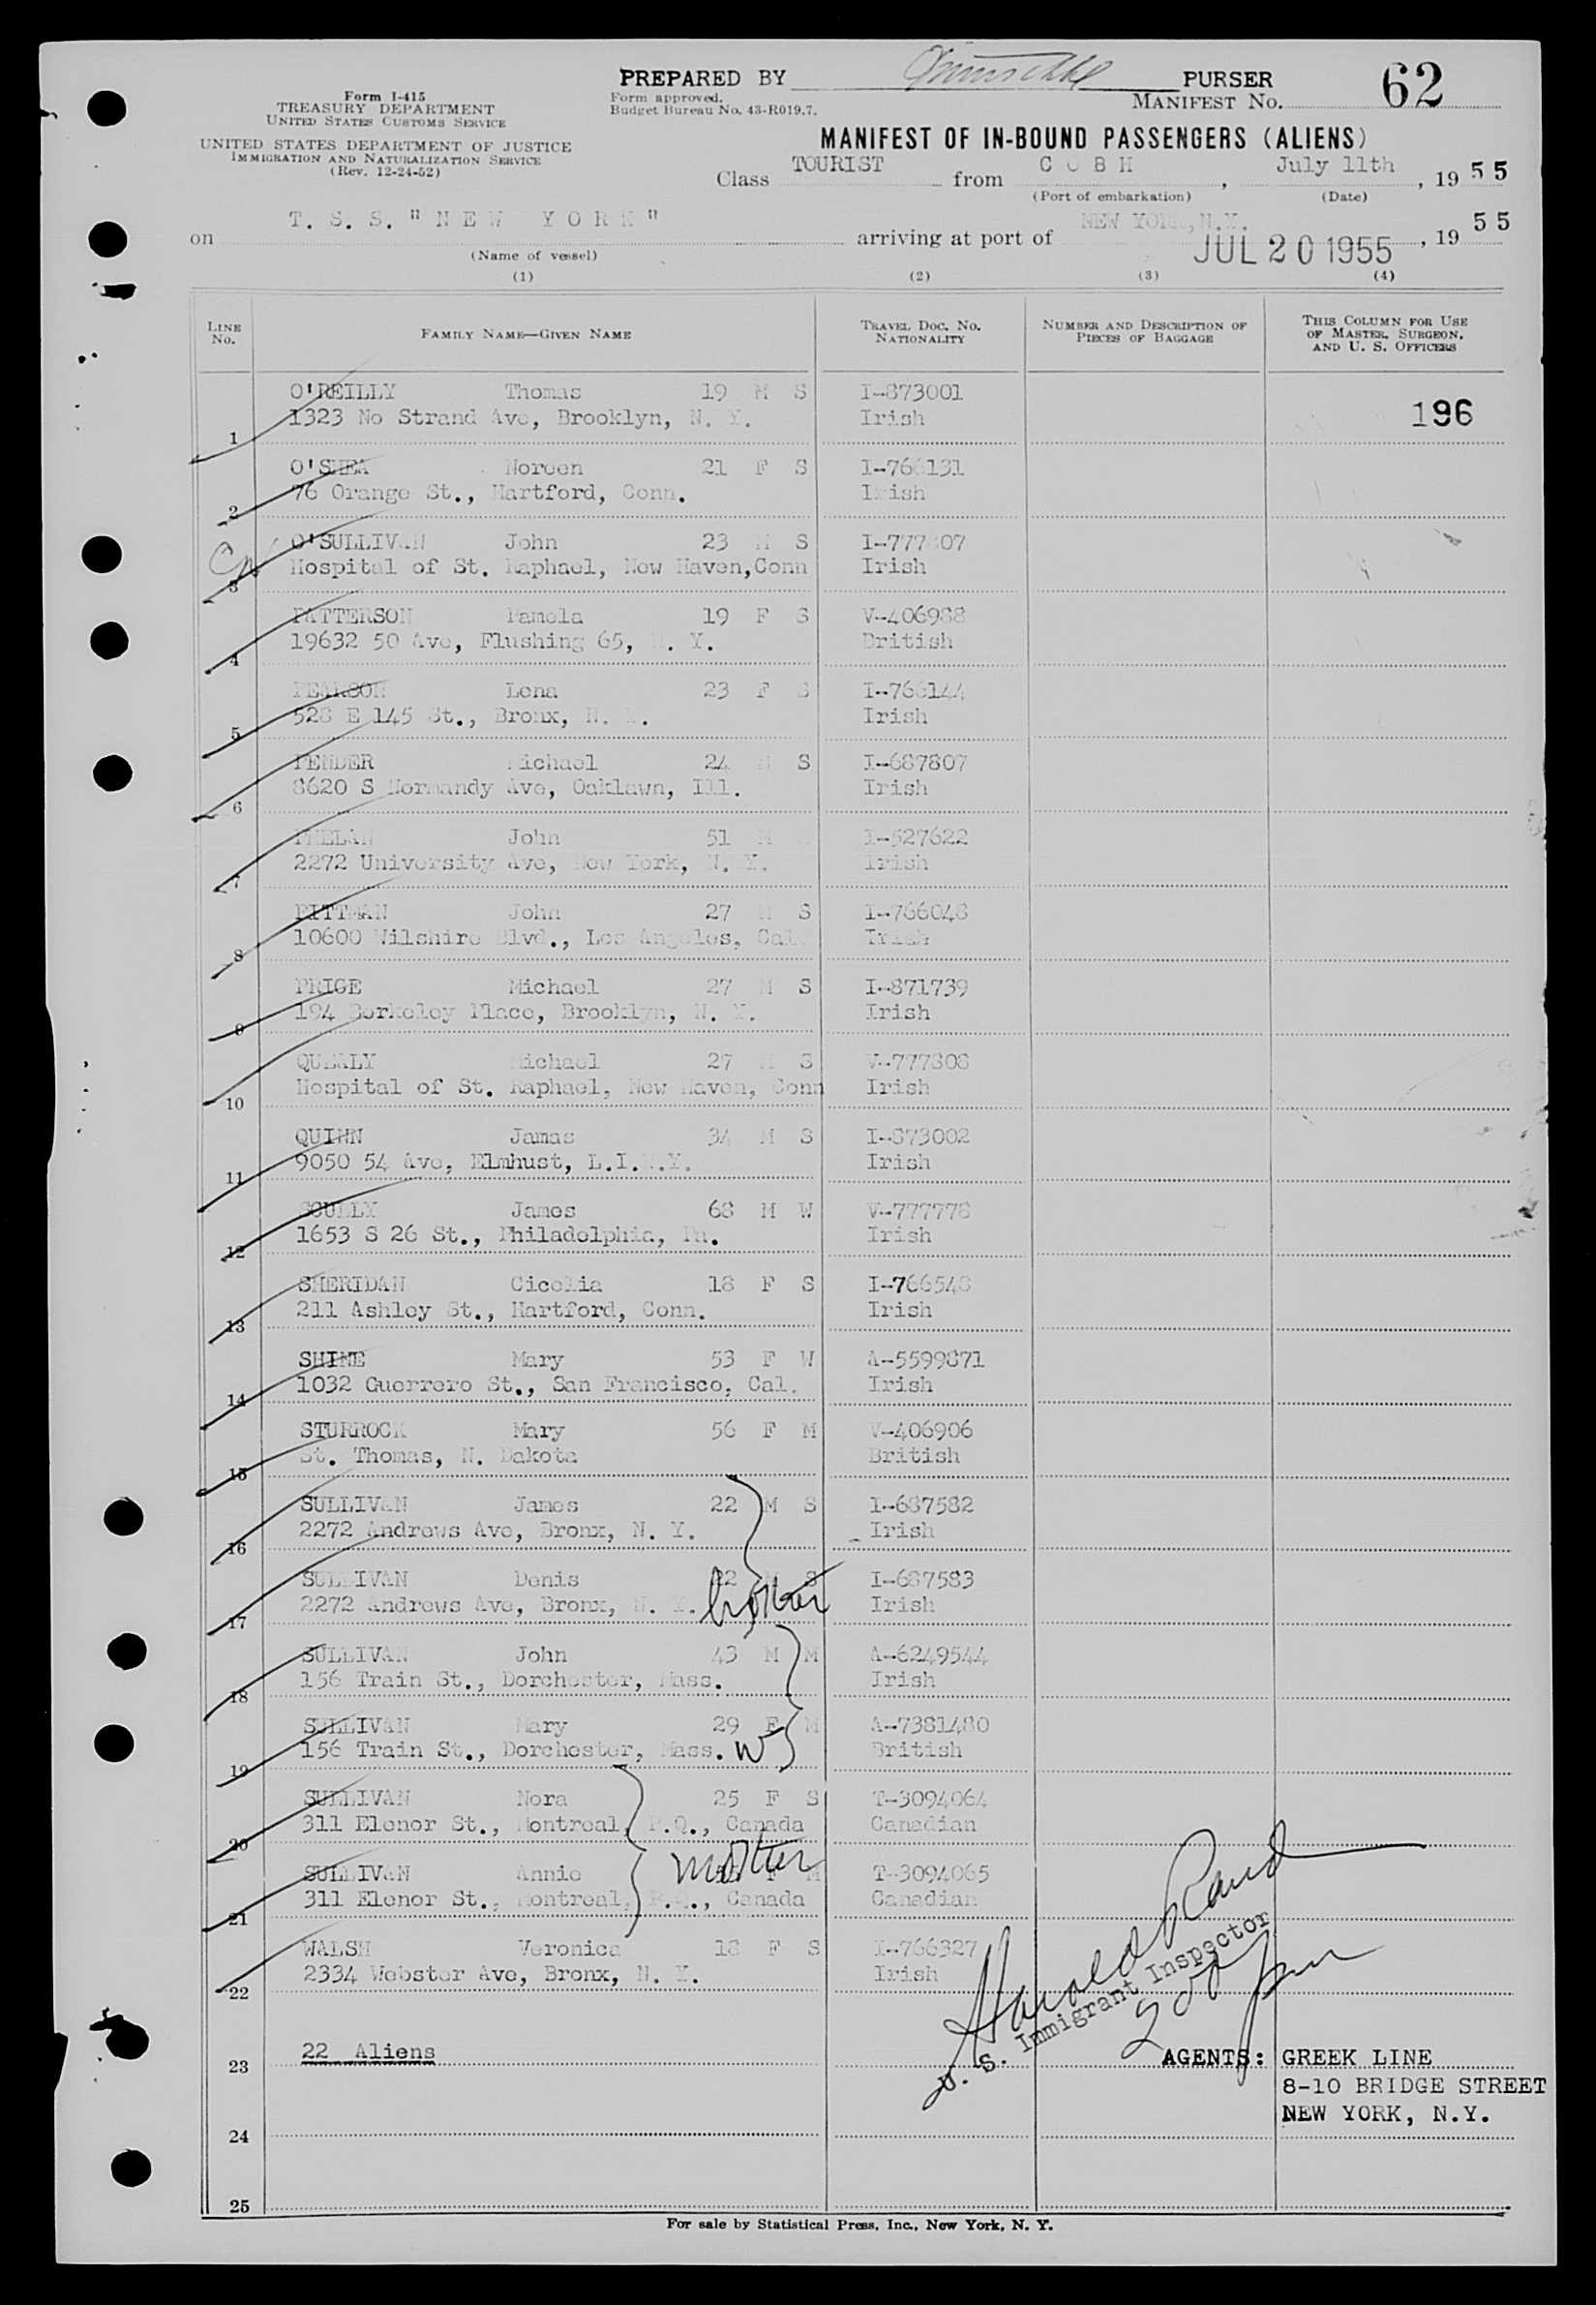 PREPARED BY PURSER
Form approved.
Budget Bureau No. 43-R019.7.
MANIFEST No. 62
Form I-415
TREASURY DEPARTMENT
UNITED STATES CUSTOMS SERVICE
UNITED STATES DEPARTMENT OF JUSTICE
IMMIGRATION AND NATURALIZATION SERVICE
(Rev. 12-24-52)
MANIFEST OF IN-BOUND PASSENGERS (ALIENS)
Class TOURIST from COBH, July 11th, 1955
(Port of embarkation) (Date)
on T. S. S. "NEW YORK" arriving at port of NEW YORK, N.Y. JUL 20 1955, 1955
(Name of vessel)
(1) (2) (3) (4)
LINE No. FAMILY NAME—GIVEN NAME TRAVEL DOC. No. NATIONALITY NUMBER AND DESCRIPTION OF PIECES OF BAGGAGE THIS COLUMN FOR USE OF MASTER, SURGEON, AND U. S. OFFICERS
O'REILLY Thomas 19 M S I-873001
1 1323 No Strand Ave, Brooklyn, N. Y. Irish 196
O'SHEA Noreen 21 F S I-766131
2 76 Orange St., Hartford, Conn. Irish
O'SULLIVAN John 23 M S I-777807
3 Hospital of St. Raphael, New Haven,Conn Irish
PATTERSON Pamela 19 F S V-406988
4 19632 50 Ave, Flushing 65, N. Y. British
PEARSON Lena 23 F S I-766144
5 528 E 145 St., Bronx, N. Y. Irish
PENDER Michael 24 M S I-687807
6 8620 S Normandy Ave, Oaklawn, Ill. Irish
PHELAN John 51 M I-527622
7 2272 University Ave, New York, N. Y. Irish
PITTMAN John 27 M S I-766048
8 10600 Wilshire Blvd., Los Angeles, Cal. Irish
PRIGE Michael 27 M S I-871739
9 194 Berkeley Place, Brooklyn, N. Y. Irish
QUEALY Michael 27 M S V-777808
10 Hospital of St. Raphael, New Haven, Conn Irish
QUINN Jamas 34 M S I-873002
11 9050 54 Ave, Elmhust, L.I.N.Y. Irish
SCULLY James 68 M W V-777778
12 1653 S 26 St., Philadelphia, Pa. Irish
SHERIDAN Cicelia 18 F S I-766548
13 211 Ashley St., Hartford, Conn. Irish
SHINE Mary 53 F W A-5599871
14 1032 Guerrero St., San Francisco, Cal. Irish
STURROCK Mary 56 F M V-406906
15 St. Thomas, N. Dakota British
SULLIVAN James 22 M S I-687582
16 2272 Andrews Ave, Bronx, N. Y. Irish
SULLIVAN Denis 22 M S I-687583
17 2272 Andrews Ave, Bronx, N. Y. brother Irish
SULLIVAN John 43 M M A-6249544
18 156 Train St., Dorchester, Mass. Irish
SULLIVAN Mary 29 F M A-7381480
19 156 Train St., Dorchester, Mass. W British
SULLIVAN Nora 25 F S T-3094064
20 311 Elenor St., Montreal, P.Q., Canada Canadian
SULLIVAN Annie mother F M T-3094065
21 311 Elenor St., Montreal, P.Q., Canada Canadian
WALSH Veronica 18 F S I-766327
22 2334 Webster Ave, Bronx, N. Y. Irish
Harold Rand
U. S. Immigrant Inspector
23 22 Aliens AGENTS: GREEK LINE
8-10 BRIDGE STREET
NEW YORK, N.Y.
24
25
For sale by Statistical Press, Inc., New York, N. Y.